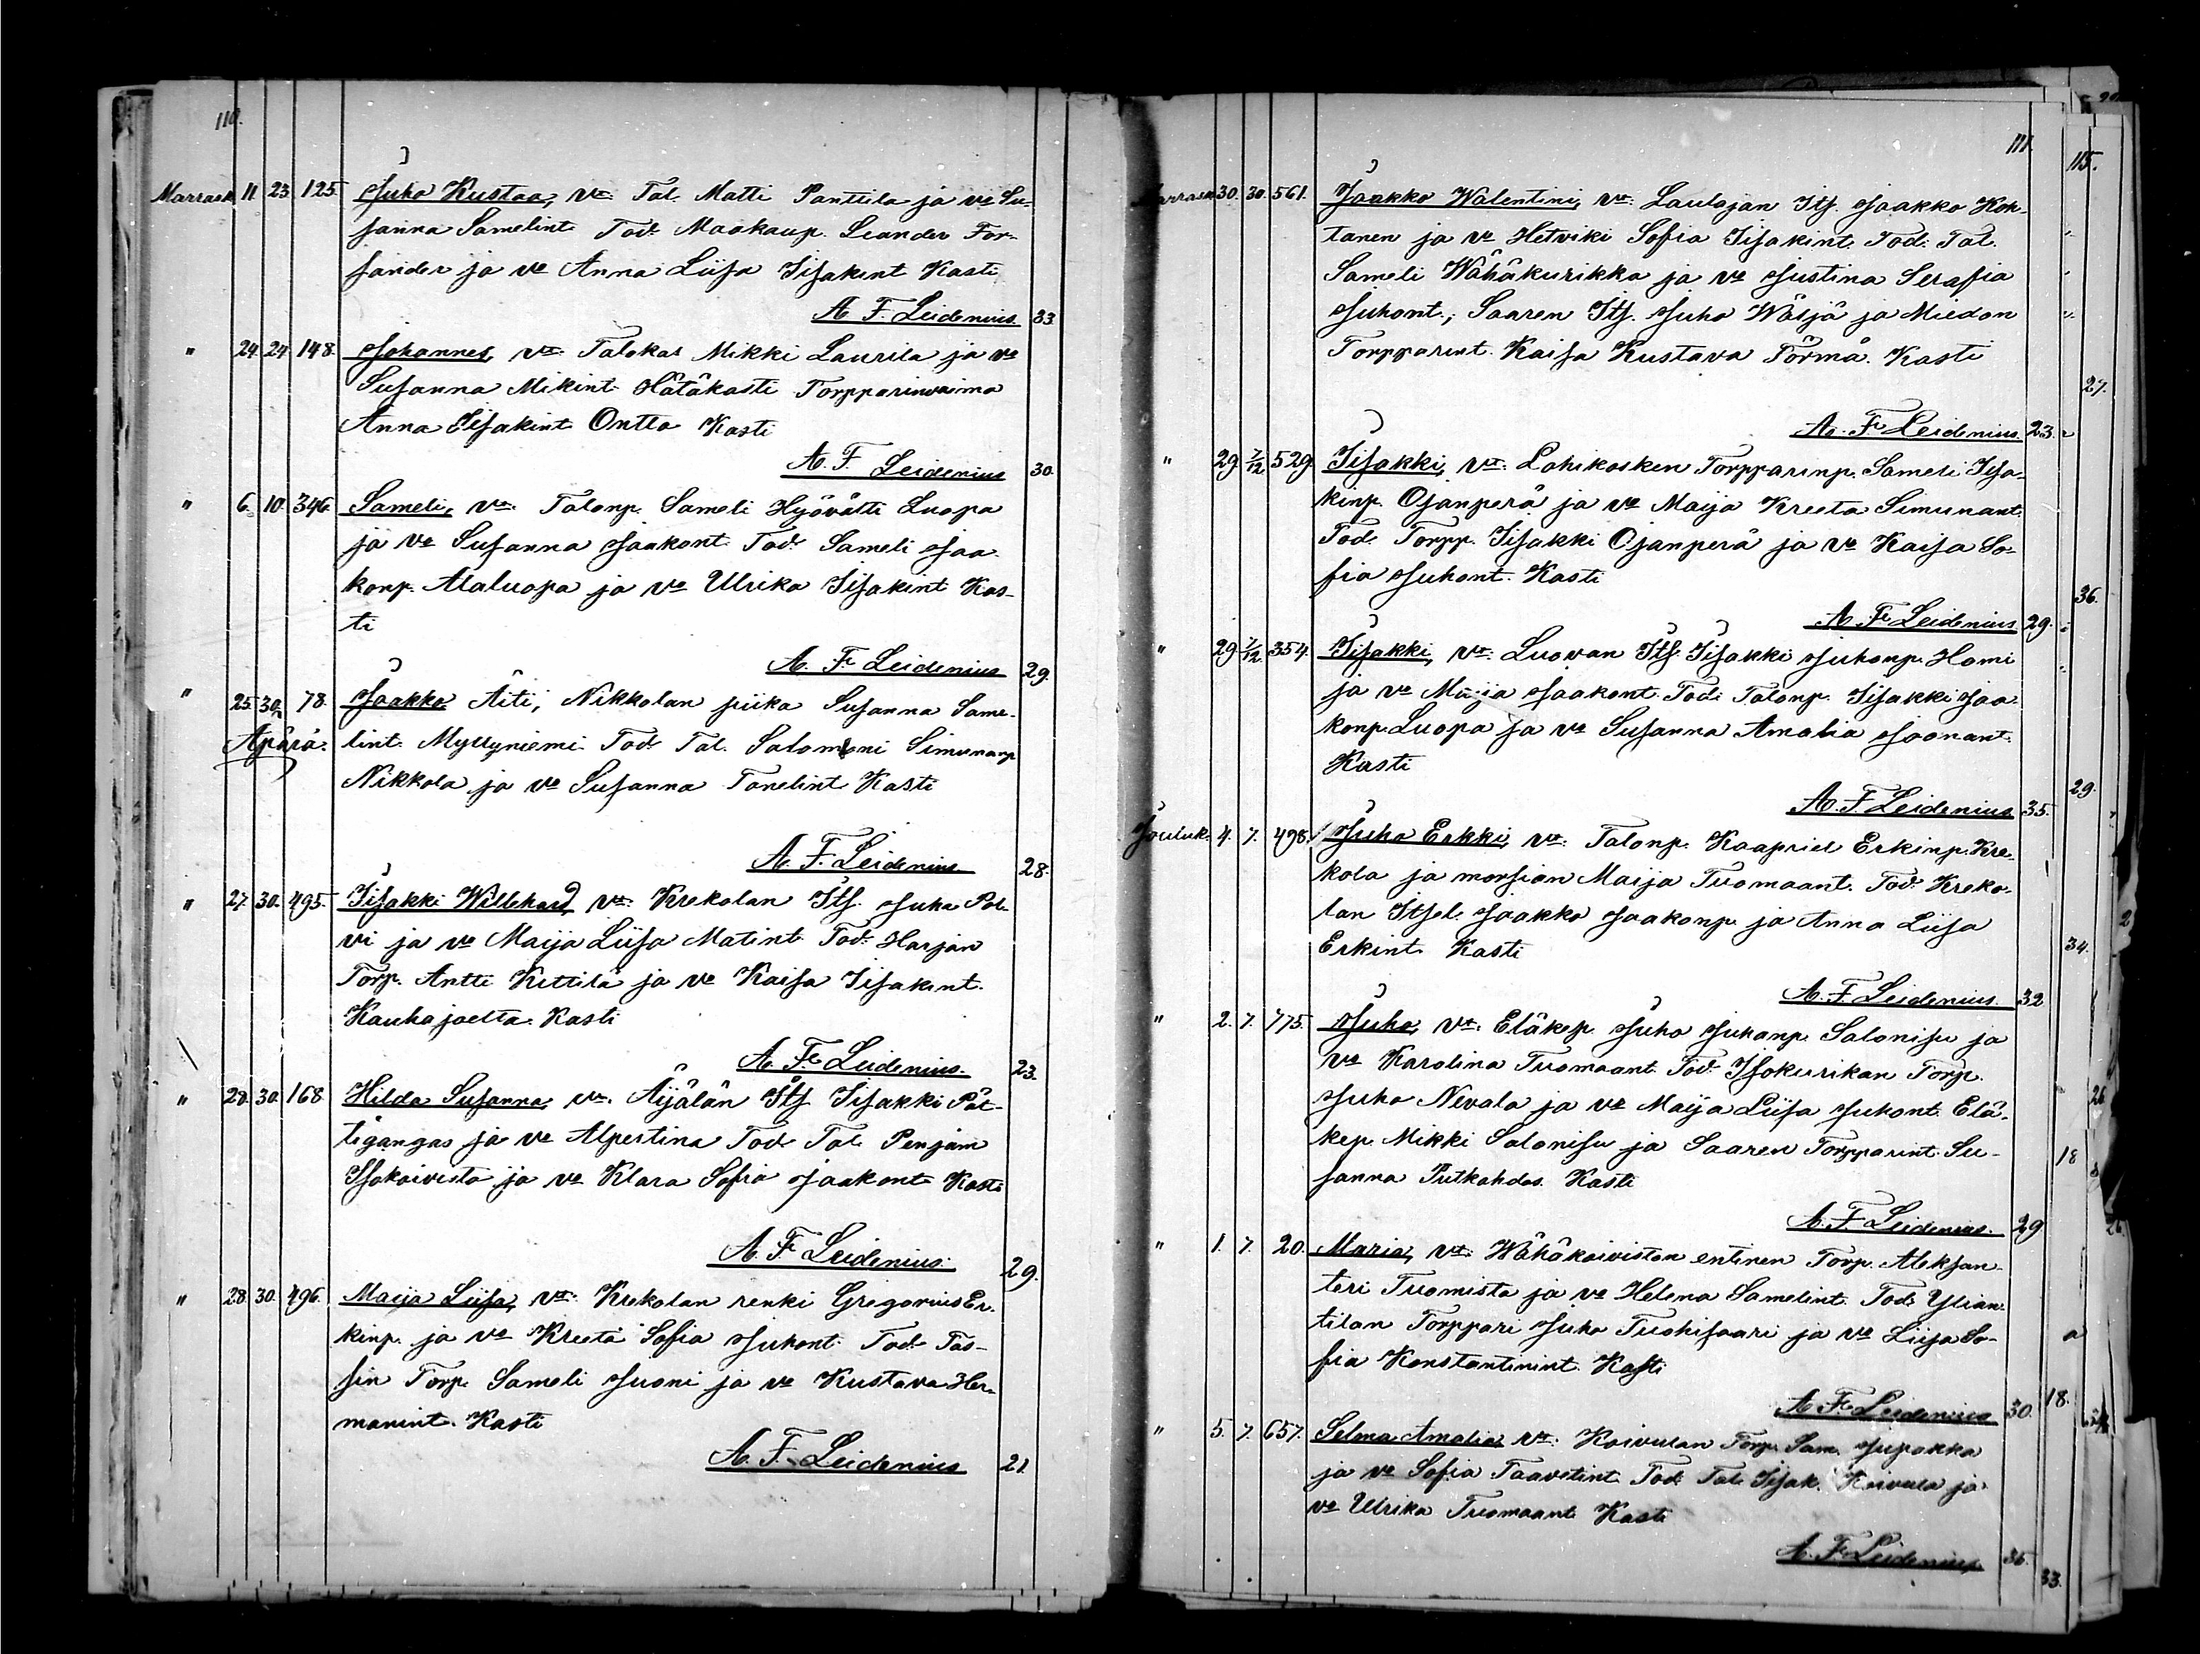 110.
Marrask. 11. 23. 125. Juho Kustaa, va: Tal. Matti Panttila ja vo Su-
sanna Samelint. Tod: Maakaup. Leander For-
sander ja vo Anna Liisa Iisakint Kasti
A. F. Leidenius. 33
" 24. 24. 148. Johannes, va: Talokas Mikki Laurila ja vo
Susanna Mikint. Hätäkasti Torpparinvaimo
Anna Eliakint Ontto Kasti
A. F. Leidenius 30.
" 6. 10. 346. Sameli, va: Talonp. Sameli Hyövälti Luopa
ja vo Susanna Jaakont. Tod: Sameli Jaa-
konp. Alaluopa ja vo Ulrika Iisakint Kas-
ti
A. F. Leidenius 29.
" 25. 30. 78. Jaakko Äiti, Nikkolan piika Susanna Same-
Äpärä. lint. Myllyniemi Tod: Tal. Salomoni Simunanp
Nikkola ja vo Susanna Tanelint Kasti
A. F. Leidenius. 28.
" 27. 30. 495. Iisakki Willehard, va: Krekolan Its. Juha Pol-
vi ja vo Maija Liisa Matint. Tod: Harjan
Torp. Antti Kittilä ja vo Kaisa Iisakint.
Kauhajoelta. Kasti
A. F. Leidenius. 23.
" 28. 30. 168. Hilda Susanna, va. Äijälän Its Iisakki Pol-
tigangas ja vo Alpertina Tod: Tal. Penjam
Isokoivisto ja vo Klara Sofia Jaakont. Kasti
A. F. Leidenius. 29.
" 28. 30. 496. Maija Liisa, va: Krekolan renki Gregorius Er-
kinp. ja vo Kreeta Sofia Juhont. Tod: Tas-
sin Torp. Sameli Juoni ja vo Kustava Her-
manint. Kasti
A. F. Leidenius 21.
111.
Marrask. 30. 30. 561. Jaakko Walentini, va: Laulajan Its. Jaakko Kok-
tanen ja vo Hetviki Sofia Iisakint. Tod: Tal.
Sameli Wähäkurikka ja vo Justina Serafia
Juhont., Saaren Its. Juho Wäsjä ja Miedon
Torpparint. Kaisa Kustava Törmä. Kasti
A. F. Leidenius. 23.
" 29. 7/12 529. Iisakki, va: Lohikosken Torpparinp. Sameli Iisa-
kinp. Ojanperä ja vo Maija Kreeta Simunant.
Tod: Torpp. Iisakki Ojanperä ja vo Kaisa So-
fia Juhont. Kasti
A. F. Leidenius. 29.
" 29. 7/12. 354. Iisakki, va: Luovan Its. Iisakki Juhonp. Homi
ja vo Maija Jaakont. Tod: Talonp. Iisakki Jaa-
konp. Luopa ja vo Susanna Amalia Joonant.
Kasti
A. F. Leidenius 35.
Jouluk. 4. 7. 498. Juho Erkki, va: Talonp. Kaapriel Erkinp. Kre-
kola ja morsian Maija Tuomaant. Tod: Kreko-
lan Itsel. Jaakko Jaakonp. ja Anna Liisa
Erkint. Kasti
A. F. Leidenius. 32
" 2. 7. 775. Juho, va: Eläkep. Juho Juhanp. Salonisu ja
vo Karolina Tuomaant. Tod: Isokurikan Torp.
Juho Nevala ja vo Maija Liisa Juhont. Elä-
kep. Mikki Salonisu ja Saaren Torpparint. Su-
sanna Putkahdos. Kasti
A. F. Leidenius. 29
" 1. 7. 20. Maria, va: Wähäkoiviston entinen Torp. Aleksan-
teri Tuomisto ja vo Helena Samelint. Tod: Ylian-
tilan Torppari Juho Tuohisaari ja vo Liisa So-
fia Konstantinint. Kasti
A. F. Leidenius 30.
" 5. 7. 657. Selma Amalia, va: Koivulan Torp. Sam. Jupakka
ja vo Sofia Taavetint. Tod: Tal. Iisak. Koivula ja
vo Ulrika Tuomaant Kasti
A. F. Leidenius 35.
115.
27.
36.
29.
34.
26
18
18.
33.